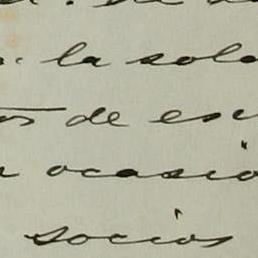 la sola
os de es
ocasio
socios